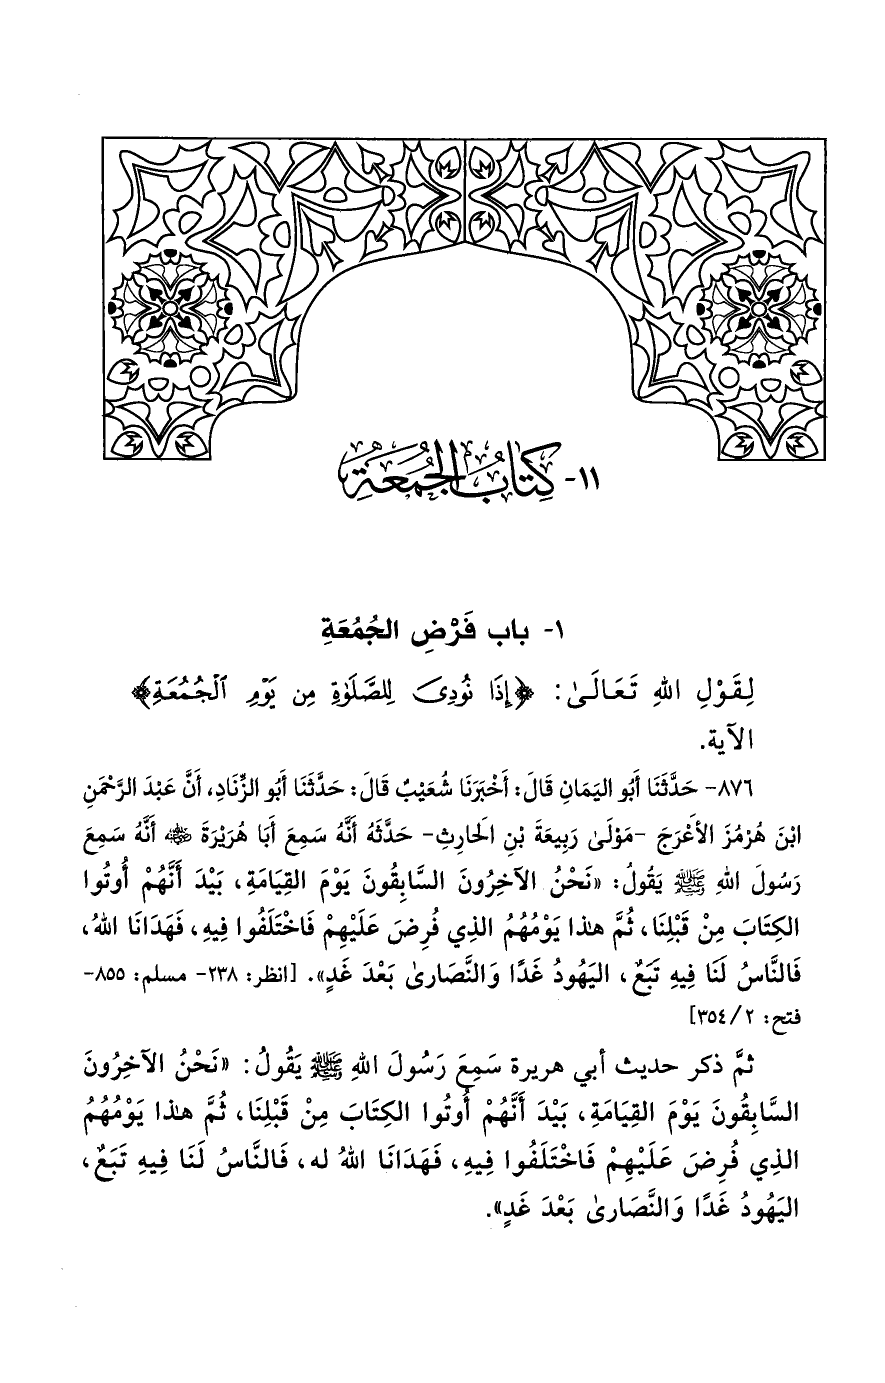 ١١- كِتَابُ الجُمُعَةِ
١- باب فَرْضِ الجُمُعَةِ
لِقَوْلِ اللهِ تَعَالَىٰ: ﴿إِذَا نُودِىَ لِلصَّلَوٰةِ مِن يَوْمِ ٱلْجُمُعَةِ﴾
الآية.
٨٧٦- حَدَّثَنَا أَبُو اليَمَانِ قَالَ: أَخْبَرَنَا شُعَيْبٌ قَالَ: حَدَّثَنَا أَبُو الزِّنَادِ، أَنَّ عَبْدَ الرَّحْمَنِ
ابْنَ هُرْمُزَ الأَعْرَجَ -مَوْلَىٰ رَبِيعَةَ بْنِ الحَارِثِ- حَدَّثَهُ أَنَّهُ سَمِعَ أَبَا هُرَيْرَةَ رضي الله عنه أَنَّهُ سَمِعَ
رَسُولَ اللهِ ﷺ يَقُولُ: «نَحْنُ الآخِرُونَ السَّابِقُونَ يَوْمَ القِيَامَةِ، بَيْدَ أَنَّهُمْ أُوتُوا
الكِتَابَ مِنْ قَبْلِنَا، ثُمَّ هٰذا يَوْمُهُمُ الذِي فُرِضَ عَلَيْهِمْ فَاخْتَلَفُوا فِيهِ، فَهَدَانَا اللهُ،
فَالنَّاسُ لَنَا فِيهِ تَبَعٌ، اليَهُودُ غَدًا وَالنَّصَارىٰ بَعْدَ غَدٍ». [انظر: ٢٣٨- مسلم: ٨٥٥-
فتح: ٢/ ٣٥٤]
ثمَّ ذكر حديث أبي هريرة سَمِعَ رَسُولَ اللهِ ﷺ يَقُولُ: «نَحْنُ الآخِرُونَ
السَّابِقُونَ يَوْمَ القِيَامَةِ، بَيْدَ أَنَّهُمْ أُوتُوا الكِتَابَ مِنْ قَبْلِنَا، ثُمَّ هٰذا يَوْمُهُمُ
الذِي فُرِضَ عَلَيْهِمْ فَاخْتَلَفُوا فِيهِ، فَهَدَانَا اللهُ له، فَالنَّاسُ لَنَا فِيهِ تَبَعٌ،
اليَهُودُ غَدًا وَالنَّصَارىٰ بَعْدَ غَدٍ».